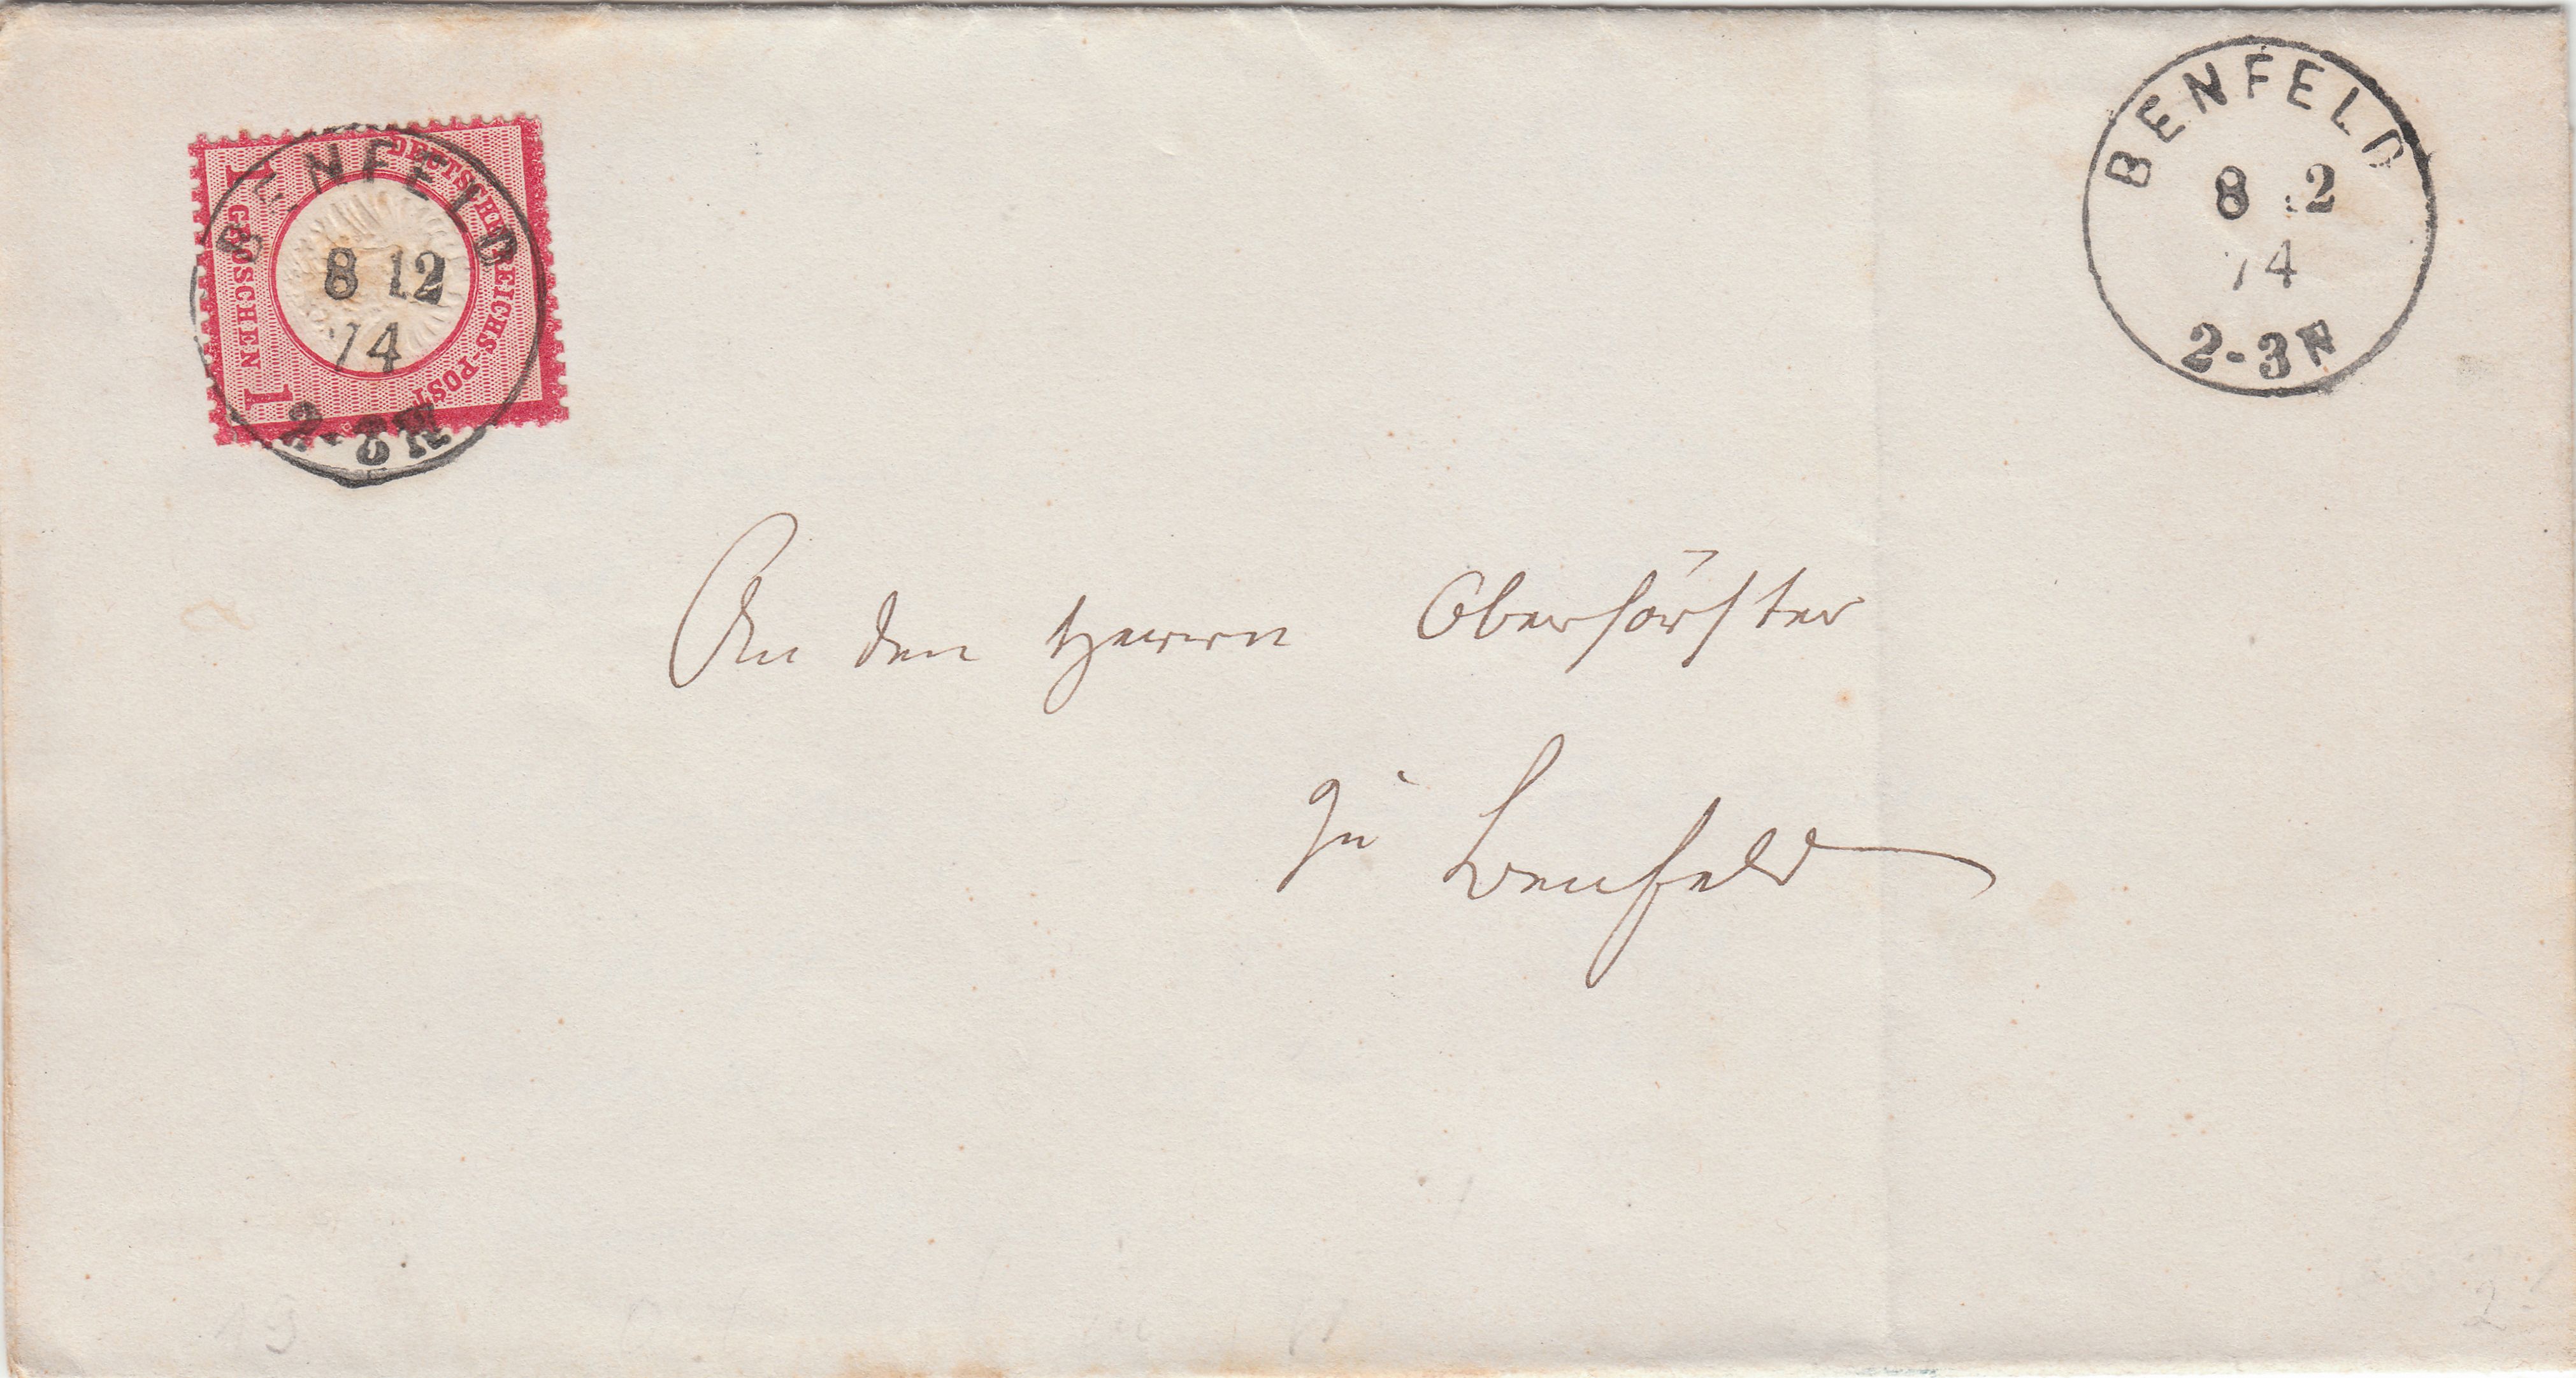 DEUTSCHE REICHS-POST
1 GROSCHEN 1
BENFELD
8 12
74
2-3N
BENFELD
8 12
74
2-3N
An den Herrn Oberförster
zu Benfeld